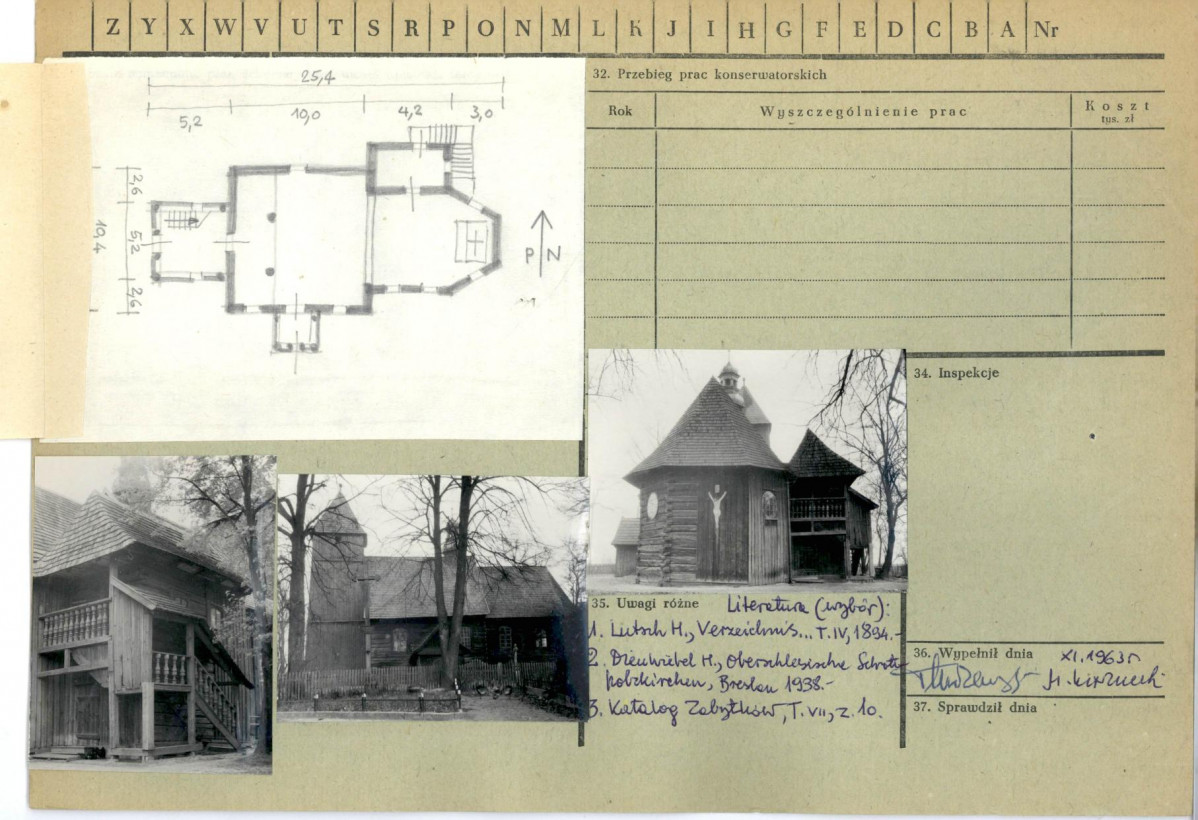 Z Y X W V U T S R P O N M L K J I H G F E D C B A Nr
25,4
5,2 10,0 4,2 3,0
2,6
5,2
2,6
10,4
P N
32. Przebieg prac konserwatorskich
Rok Wyszczególnienie prac Koszt
tys. zł
34. Inspekcje
35. Uwagi różne Literatura (wybór):
1. Lutsch H., Verzeichnis... T.IV, 1894.-
2. Dienwiebel H., Oberschlesische Schrotz-
holzkirchen, Breslau 1938.-
3. Katalog Zabytków, T. VII, z. 10.
36. Wypełnił dnia XI.1963 r
37. Sprawdził dnia